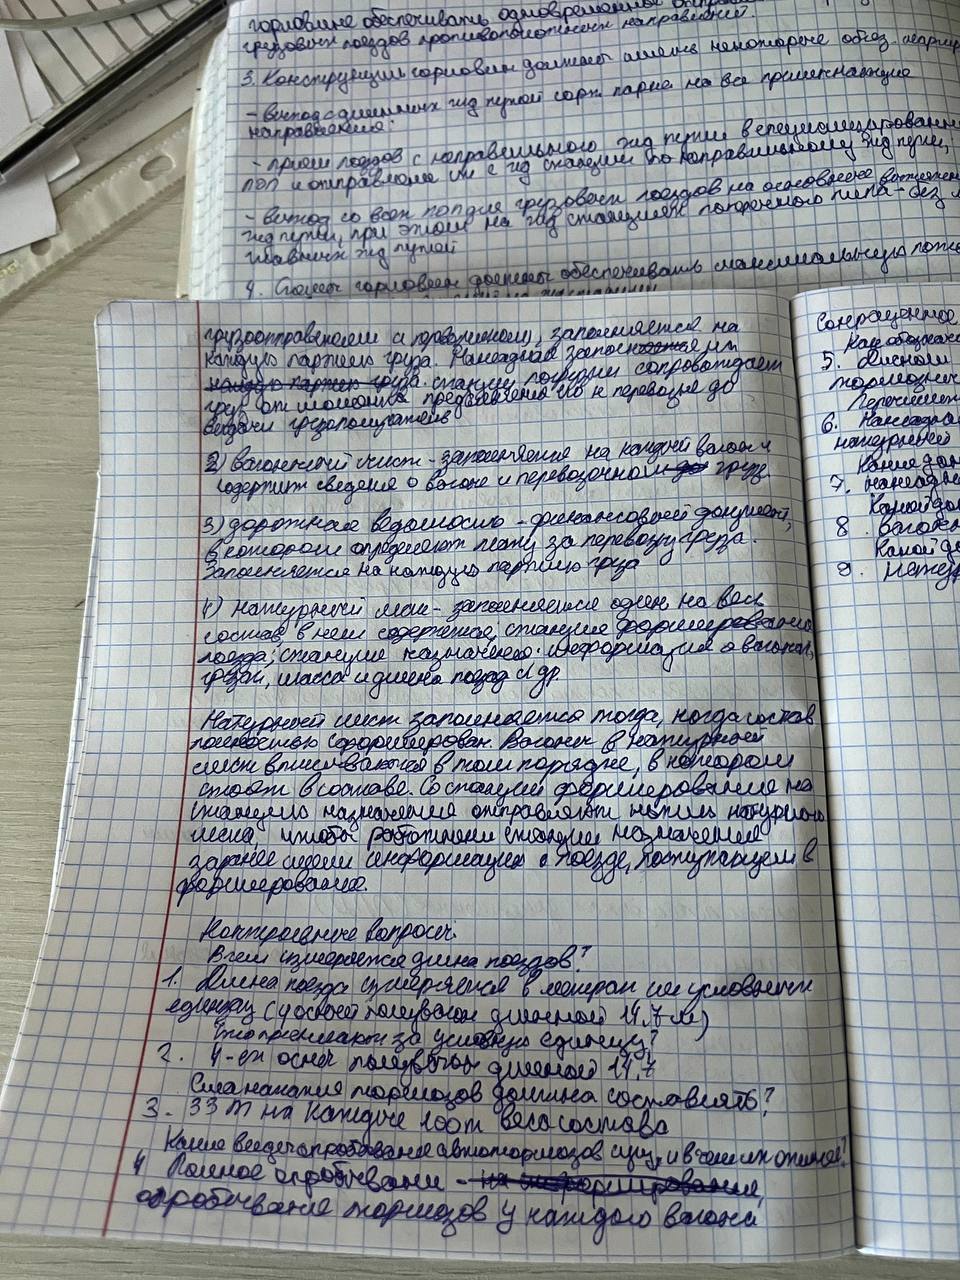 горловине обеспечивать одновременное отправ
грузовых поездов противоположных направлений.
3. Конструкции горловин должны иметь некоторые обяз.
- выход с длинных жд путей сорт. парка на все примыкающие
направления;
- приём поездов с неправильного жд пути в специализированные
ПОП и отправление их с жд станции по неправильному жд пути,
- выход со всех поп для грузовых поездов на основные вытяжные
жд пути, при этом на жд станциях поперечного типа - без
главных жд путей
4. горловин должны обеспечивать максимальную
грузоотправителем и заполняется на
каждую партию груза. Накладная
каждую партию груза. станции погрузки сопровождает
груз от момента предъявления его к перевозке до
выдачи грузополучателю
2) Вагонный лист - заполняется на каждый вагон и
содержит сведения о вагоне и перевозочной грузе
3) дорожная ведомость - финансовый документ,
в котором определяют плату за перевозку груза.
Заполняется на каждую партию груза
4) натурный лист - заполняется один на весь
состав, в нем содержится; станция формирования
поезда; станция назначения. Информация о вагонах,
грузах, масса и длина поезда и др
Натурный лист заполняется тогда, когда состав
полностью сформирован. Вагоны в натурный
лист вписываются в том порядке, в котором
стоят в составе. Со станции формирования на
станцию назначения отправляют копии натурного
листа, чтобы работники станции назначения
заранее имели информацию о поезде, поступающем в
формирование.
Контрольные вопросы:
В чем измеряется длина поездов?
1. Длина поезда измеряется в метрах или условных
единицах (4 осный полувагон длинной 14,7 м)
Что принимают за условную единицу?
2. 4-ех осный полувагон длиной 14,7
Сила нажатия тормозов должна составлять?
3. 33 т на каждые 100т веса состава
Какие виды опробования автотормозов сущ. и в чем их отличие?
4 Полное опробывание - на формирования,
опробывание тормозов у каждого вагона
Сокращенное
Как обознача
5. Длинной
тормозн
Перечислит
6. Накладна
натурный
Какие док
7. накладн
Какой до
8. Вагонн
Какой до
9. Натур